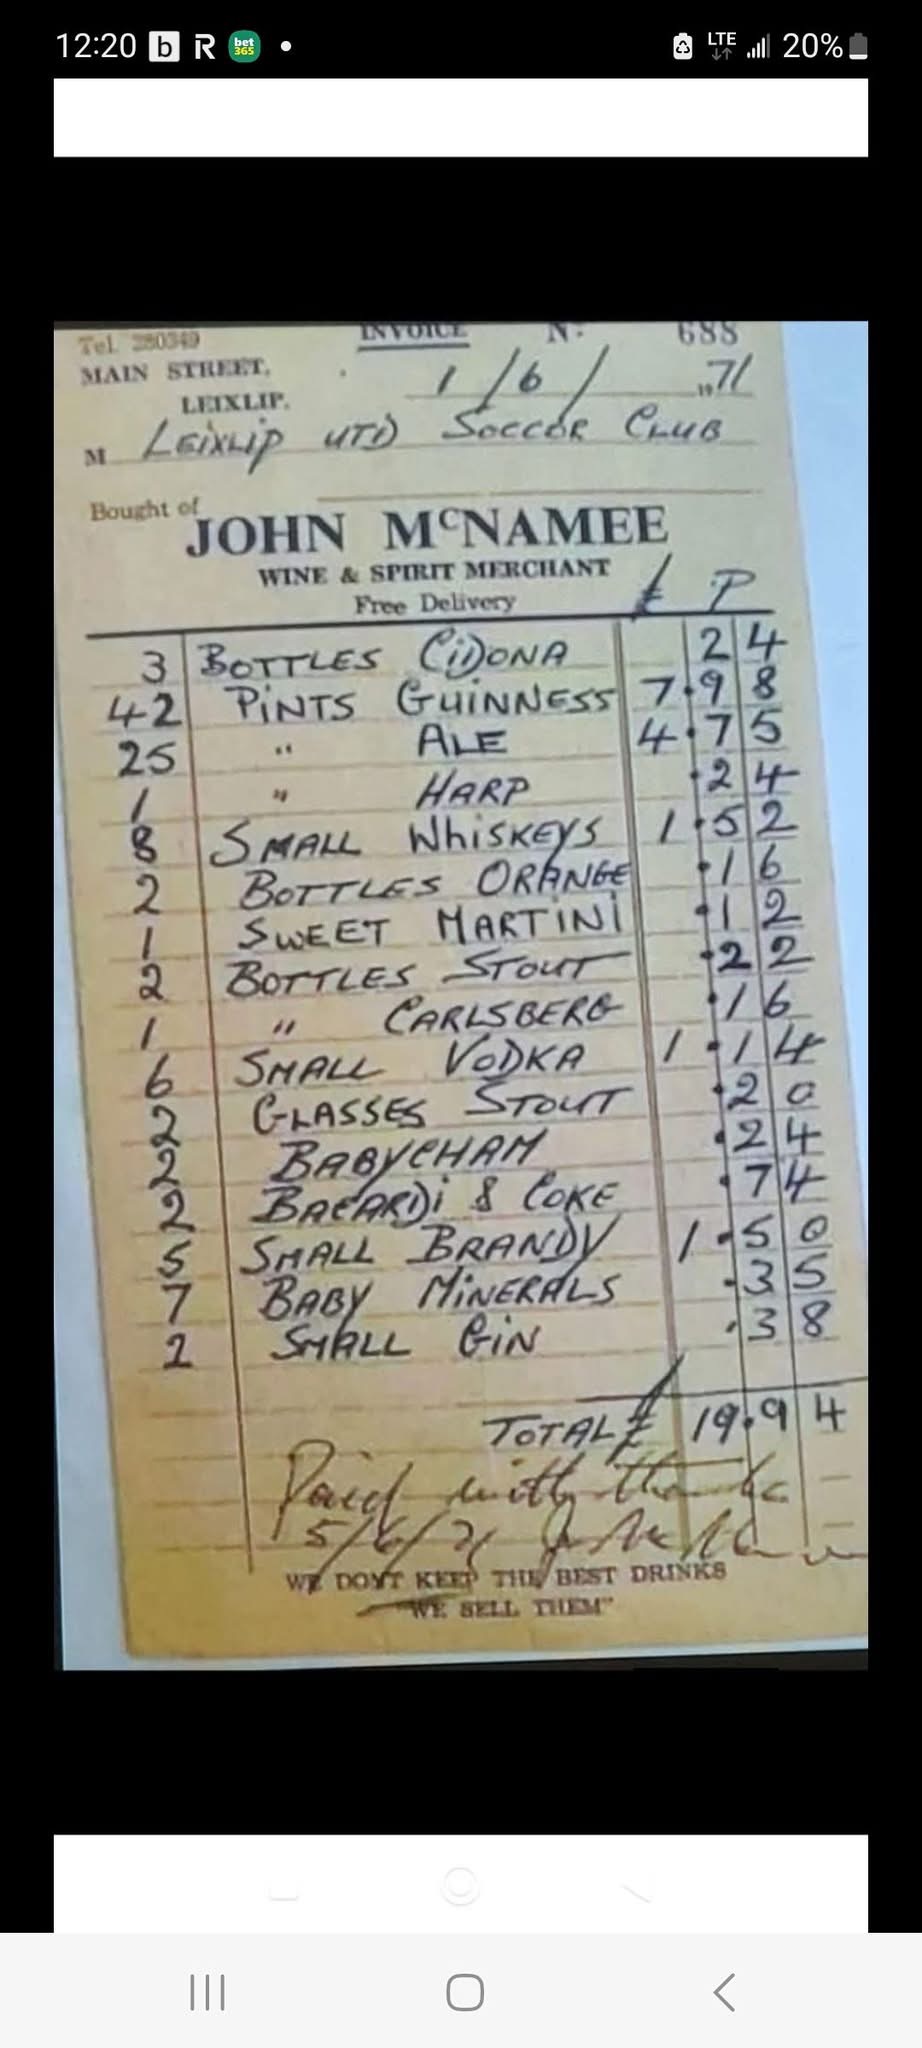 12:20 b R bet365 LTE 20%
INVOICE Nº 688
Tel. 280349
MAIN STREET,
LEIXLIP.
1/6/ 1971
M Leixlip UTD Soccor Club
Bought of
JOHN McNAMEE
WINE & SPIRIT MERCHANT
Free Delivery
£ P
3 BOTTLES CiDONA 24
42 PiNTS GUiNNESS 7.98
25 " ALE 4.75
1 " HARP .24
8 SMALL WHiSKEYS 1.52
2 BOTTLES ORANGE .16
1 SWEET MARTiNi .12
2 BOTTLES STOUT .22
1 " CARLSBERG .16
6 SMALL VODKA 1.14
2 GLASSES STOUT .20
2 BABYCHAM .24
2 BACARDi & COKE .74
5 SMALL BRANDY 1.50
7 BABY MiNERALS .35
2 SMALL GiN .38
TOTAL £ 19.94
Paid with thanks
5/6/71
WE DON'T KEEP THE BEST DRINKS
"WE SELL THEM"